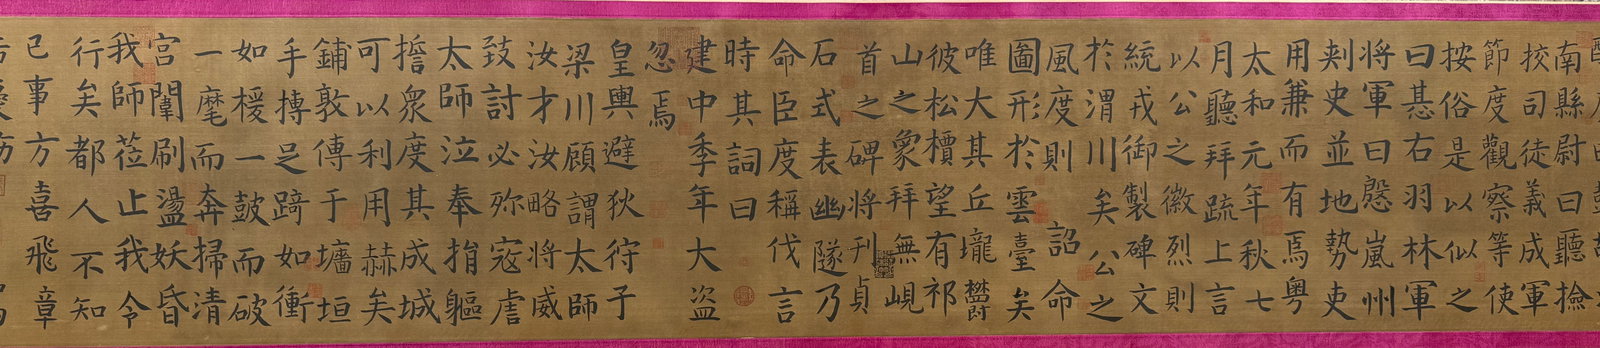 南縣尉曰聽撿
挍司徒義成軍
節度觀察等使
按俗是以似之
曰惎右羽林軍
將軍曰慇嵐州
刾史並地勢吏
用兼而有焉粤
太和元年秋七
月聽拜疏上言
以公之徽烈則
統戎御製碑文
於渭川矣公之
風度則 詔命
圖形於雲臺矣
唯大其丘壠欝
彼松檟望有祁
山之象拜無峴
首之碑將刊貞
石式表幽隧乃
命臣度稱伐言
時其詞曰
建中季年大盜
忽焉
皇輿避狄狩于
梁川顧謂太師
汝才汝略將威
致討必殄寇虐
太師泣奉捐軀
誓衆度其成城
可以利用赫矣
鋪敦傅于墉垣
手搏足蹐如衝
如楥一鼓而破
一麾而奔掃清
宮闈刷盪妖昏
我師蒞止我令
行矣都人不知
已事方喜飛章